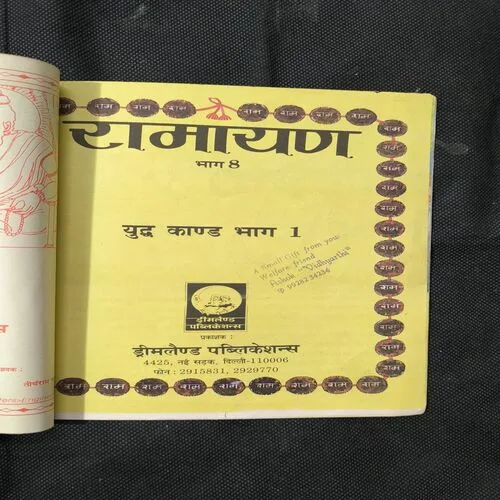 राम राम राम राम राम राम राम राम राम राम
रामायण
भाग 8
युद्ध काण्ड भाग 1
A Small Gift from your
Welfare friend
Ashok "Vidhyarthi"
ड्रीमलैण्ड
पब्लिकेशन्स
प्रकाशक :
ड्रीमलैण्ड पब्लिकेशन्स
4425, नई सड़क, दिल्ली-110006
फोन : 2915831, 2929770
राम राम राम राम राम राम राम राम